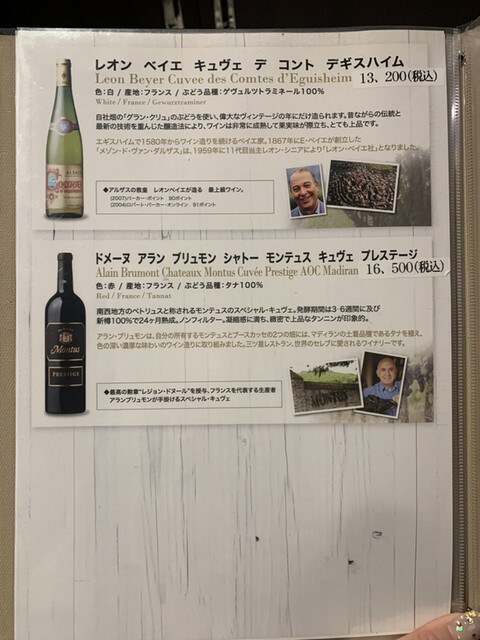 レオン ベイエ キュヴェ デ コント デギスハイム
Leon Beyer Cuvee des Comtes d'Eguisheim 13、200(税込)
色:白 / 産地:フランス / ぶどう品種:ゲヴュルツトラミネール100%
White / France / Gewurztraminer
自社畑の「グラン・クリュ」のぶどうを使い、偉大なヴィンテージの年にだけ造られます。昔ながらの伝統と
最新の技術を重んじた醸造法により、ワインは非常に成熟して果実味が際立ち、とても上品です。
エギスハイムで1580年からワイン造りを続けるベイエ家。1867年にE・ベイエが創立した
「メゾン・ド・ヴァン・ダルザス」は、1959年に11代目当主レオン・シニアにより「レオン・ベイエ社」となりました。
◆アルザスの数量 レオンベイエが造る 最上級ワイン。
(2007)パーカー・ポイント 90ポイント
(2004)ロバート・パーカー・オンライン 91ポイント
ドメーヌ アラン ブリュモン シャトー モンテュス キュヴェ プレステージ
Alain Brumont Chateaux Montus Cuvée Prestige AOC Madiran 16、500(税込)
色:赤 / 産地:フランス / ぶどう品種:タナ100%
Red / France / Tannat
南西地方のペトリュスと称されるモンテュスのスペシャル・キュヴェ。発酵期間は3-6週間に及び
新樽100%で24ヶ月熟成。ノンフィルター。凝縮感に満ち、緻密で上品なタンニンが印象的。
アラン・ブリュモンは、自分の所有するモンテュスとブースカッセの2つの畑には、マディランの土着品種であるタナを植え、
色の深い濃厚な味わいのワイン造りに取り組みました。三ツ星レストラン、世界のセレブに愛されるワイナリーです。
◆最高の勲章"レジョン・ドヌール"を授与、フランスを代表する生産者
アランブリュモンが手掛けるスペシャル・キュヴェ
Montus
PRESTIGE
MONTUS